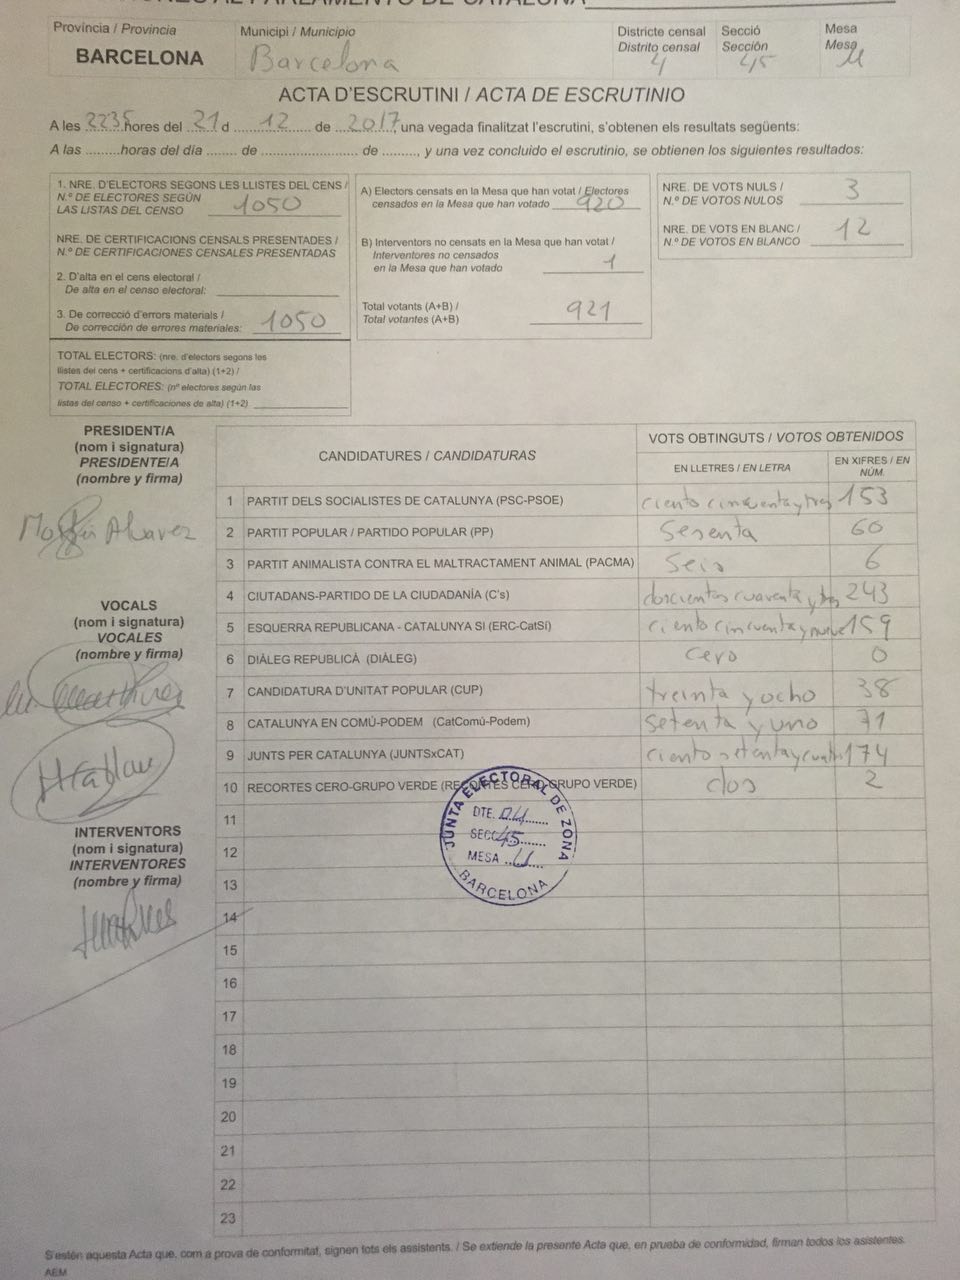 Província / Provincia
BARCELONA
Municipi / Municipio
Barcelona
Districte censal
Distrito censal
4
Secció
Sección
45
Mesa
Mesa
U
ACTA D'ESCRUTINI / ACTA DE ESCRUTINIO
A les 2235 hores del 21 d 12 de 2017, una vegada finalitzat l'escrutini, s'obtenen els resultats següents:
A las .........horas del día ....... de ....................... de ........, y una vez concluido el escrutinio, se obtienen los siguientes resultados:
1. NRE. D'ELECTORS SEGONS LES LLISTES DEL CENS /
N.º DE ELECTORES SEGÚN
LAS LISTAS DEL CENSO 1050
NRE. DE CERTIFICACIONS CENSALS PRESENTADES /
N.º DE CERTIFICACIONES CENSALES PRESENTADAS
2. D'alta en el cens electoral /
De alta en el censo electoral:
3. De correcció d'errors materials /
De corrección de errores materiales: 1050
TOTAL ELECTORS: (nre. d'electors segons les
llistes del cens + certificacions d'alta) (1+2) /
TOTAL ELECTORES: (nº electores según las
listas del censo + certificaciones de alta) (1+2)
A) Electors censats en la Mesa que han votat / Electores
censados en la Mesa que han votado 920
B) Interventors no censats en la Mesa que han votat /
Interventores no censados
en la Mesa que han votado 1
Total votants (A+B) /
Total votantes (A+B) 921
NRE. DE VOTS NULS /
N.º DE VOTOS NULOS 3
NRE. DE VOTS EN BLANC /
N.º DE VOTOS EN BLANCO 12
PRESIDENT/A
(nom i signatura)
PRESIDENTE/A
(nombre y firma)
Alvarez
VOCALS
(nom i signatura)
VOCALES
(nombre y firma)
INTERVENTORS
(nom i signatura)
INTERVENTORES
(nombre y firma)
CANDIDATURES / CANDIDATURAS
VOTS OBTINGUTS / VOTOS OBTENIDOS
EN LLETRES / EN LETRA
EN XIFRES / EN
NÚM.
1 PARTIT DELS SOCIALISTES DE CATALUNYA (PSC-PSOE) ciento cincuenta y tres 153
2 PARTIT POPULAR / PARTIDO POPULAR (PP) Sesenta 60
3 PARTIT ANIMALISTA CONTRA EL MALTRACTAMENT ANIMAL (PACMA) Seis 6
4 CIUTADANS-PARTIDO DE LA CIUDADANÍA (C's) doscientos cuarenta y tres 243
5 ESQUERRA REPUBLICANA - CATALUNYA SI (ERC-CatSí) ciento cincuenta y nueve 159
6 DIÀLEG REPUBLICÀ (DIÀLEG) cero 0
7 CANDIDATURA D'UNITAT POPULAR (CUP) treinta y ocho 38
8 CATALUNYA EN COMÚ-PODEM (CatComú-Podem) setenta y uno 71
9 JUNTS PER CATALUNYA (JUNTSxCAT) ciento setenta y cuatro 174
10 RECORTES CERO-GRUPO VERDE (RECORTES CERO-GRUPO VERDE) dos 2
11
12
13
14
15
16
17
18
19
20
21
22
23
JUNTA ELECTORAL DE ZONA
DTE. 04
SECC 45
MESA U
BARCELONA
S'estén aquesta Acta que, com a prova de conformitat, signen tots els assistents. / Se extiende la presente Acta que, en prueba de conformidad, firman todos los asistentes.
AEM